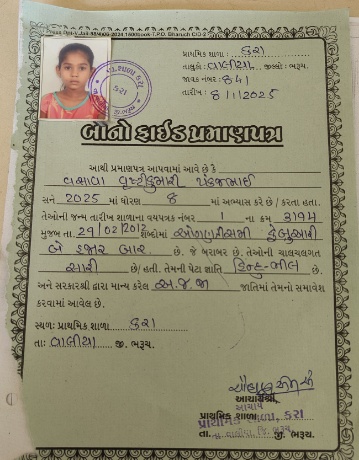 પ્રાથમિક શાળા : કરા
તાલુકો: વાલીયા જીલ્લો: ભરૂચ.
જાવક નંબર : 841
તારીખ : 8/1/2025
પ્રા. શાળા કરા
કરા
બોનો ફાઈડ પ્રમાણપત્ર
આથી પ્રમાણપત્ર આપવામાં આવે છે કે
વસાવા વૃષ્ટીકુમારી પંકજભાઈ
સને 2025 માં ધોરણ 8 માં અભ્યાસ કરે છે / કરતા હતા.
તેઓની જન્મ તારીખ શાળાના વયપત્રક નંબર 1 ના ક્રમ 3194
મુજબ તા. 29/02/2012 શબ્દોમાં ઓગણત્રીસમી ફેબ્રુઆરી
બે હજાર બાર છે. જે બરાબર છે. તેઓની ચાલચલગત
સારી છે/ હતી. તેમની પેટા જાતિ હિન્દુ-ભીલ છે.
અને સરકારશ્રી દ્વારા માન્ય કરેલ અ.જ.જા જાતિમાં તેમનો સમાવેશ
કરવામાં આવેલ છે.
સ્થળ: પ્રાથમિક શાળા કરા
તા: વાલીયા જી. ભરૂચ.
આચાર્યશ્રી,
આચાર્ય
પ્રાથમિક શાળા, કરા
પ્રાથમિક શાળા, કરા
તા. વાલીયા, જિ. ભરૂચ
તા. જી. ભરૂચ.